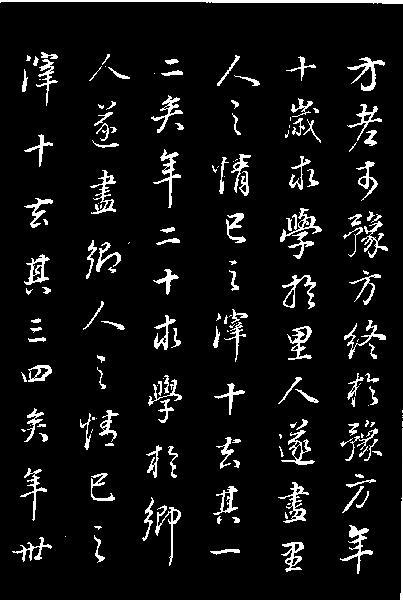 方老於豫方終於豫方年
十歲求學於里人遂盡里
人之情己之滓十去其一
二矣年二十求學於鄉
人遂盡鄉人之情己之
滓十去其三四矣年卅